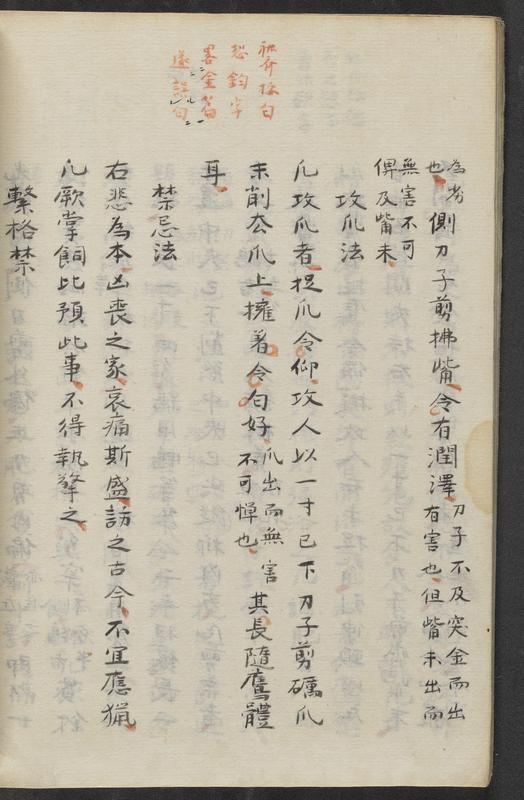 為劣
也
側刀子剪拂觜令有潤澤
刀子不及突金而出
有害也但觜未出而
無害不可
俾及觜未
攻爪法
凡攻爪者捉爪令仰攻人以一寸已下刀子剪礪爪
末削厺爪上擁着令匀好
爪出而無害
不可憚也
其長隨鷹體
耳
禁忌法
右悲為本凶喪之家哀痛斯盛訪之古今不宜應獵
凡厥掌飼比預此事不得執擎之
繫格禁